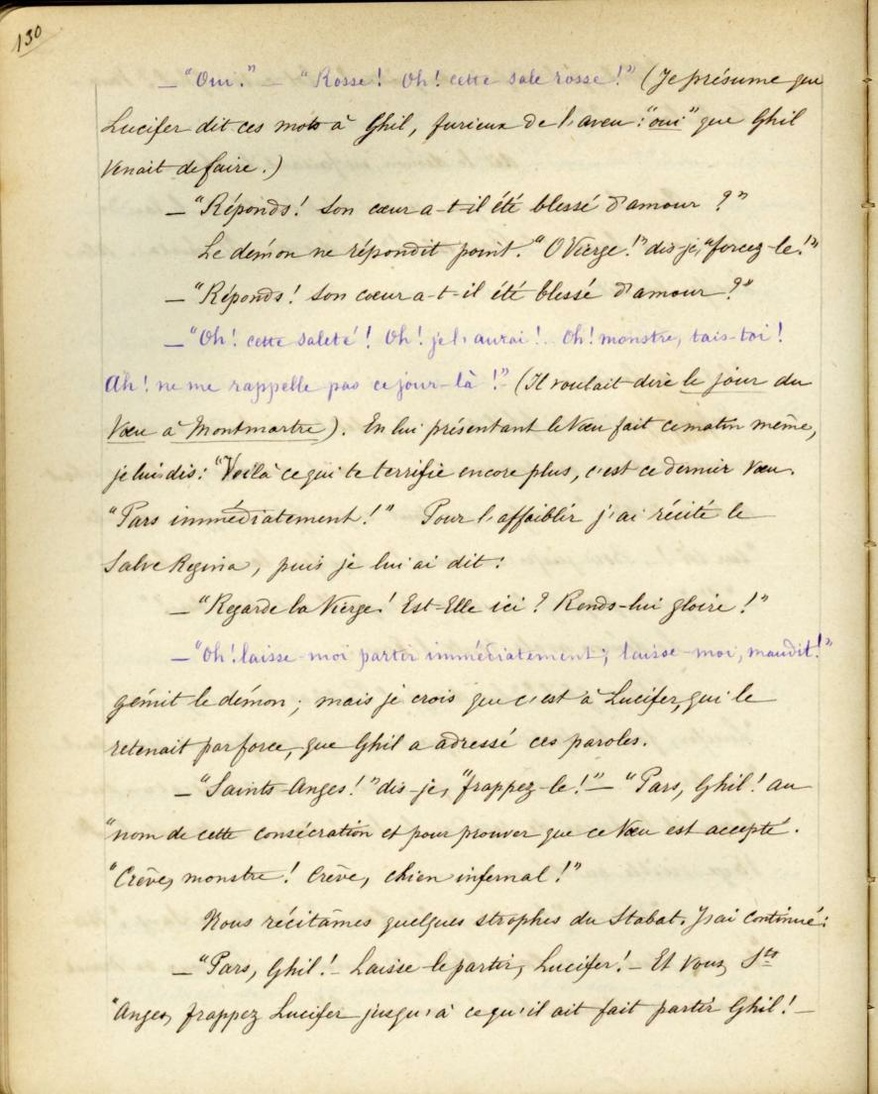 130
— "Oui." — "Rosse! Oh! cette sale rosse!" (Je présume que
Lucifer dit ces mots à Ghil, furieux de l'aveu: "oui" que Ghil
venait de faire.)
— "Réponds! Son cœur a-t-il été blessé d'amour ?"
Le démon ne répondit point. "O Vierge!" dis-je, "forcez-le!"
— "Réponds! Son cœur a-t-il été blessé d'amour ?"
— "Oh! cette saleté! Oh! je l'aurai!.. Oh! monstre, tais-toi!
Ah! ne me rappelle pas ce jour-là!" (Il voulait dire le jour du
Vœu à Montmartre). En lui présentant le Vœu fait ce matin même,
je lui dis: "Voilà ce qui te terrifie encore plus, c'est ce dernier Vœu.
"Pars immédiatement!" Pour l'affaiblir j'ai récité le
Salve Regina, puis je lui ai dit:
— "Regarde la Vierge! Est-Elle ici? Rends-lui gloire!"
— "Oh! laisse-moi partir immédiatement; laisse-moi, maudit!"
gémit le démon; mais je crois que c'est à Lucifer, qui le
retenait par force, que Ghil a adressé ces paroles.
— "Saints Anges!" dis-je, "frappez-le!" — "Pars, Ghil! au
"nom de cette consécration et pour prouver que ce Vœu est accepté.
"Crève, monstre! Crève, chien infernal!"
Nous récitâmes quelques strophes du Stabat. J'ai continué:
— "Pars, Ghil! — Laisse-le partir, Lucifer! — Et vous, Sts
"Anges, frappez Lucifer jusqu'à ce qu'il ait fait partir Ghil! —